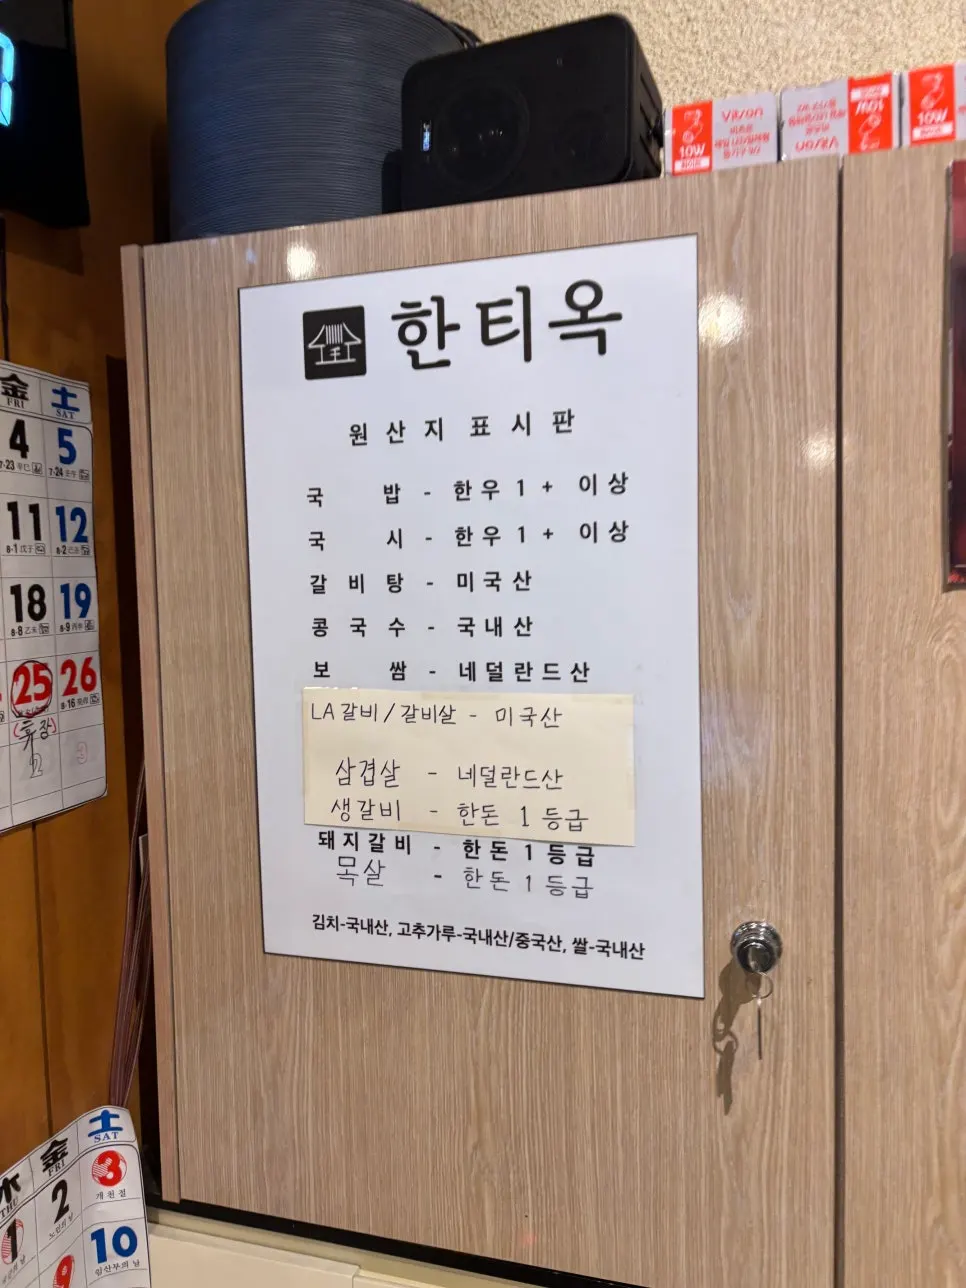 한티옥
원산지표시판
국 밥 - 한우 1+ 이상
국 시 - 한우 1+ 이상
갈비탕 - 미국산
콩국수 - 국내산
보 쌈 - 네덜란드산
LA갈비/갈비살 - 미국산
삼겹살 - 네덜란드산
생갈비 - 한돈 1등급
돼지갈비 - 한돈 1등급
목살 - 한돈 1등급
김치-국내산, 고추가루-국내산/중국산, 쌀-국내산
Vitson
10W
10W
10W
金 土
FRI SAT
4 5
7-23 7-24
11 12
8-1 8-2
18 19
8-8 8-9
25 26
8-16
木 金 土
THU FRI SAT
1 2 3
노인의 날 개천절
10
임산부의 날